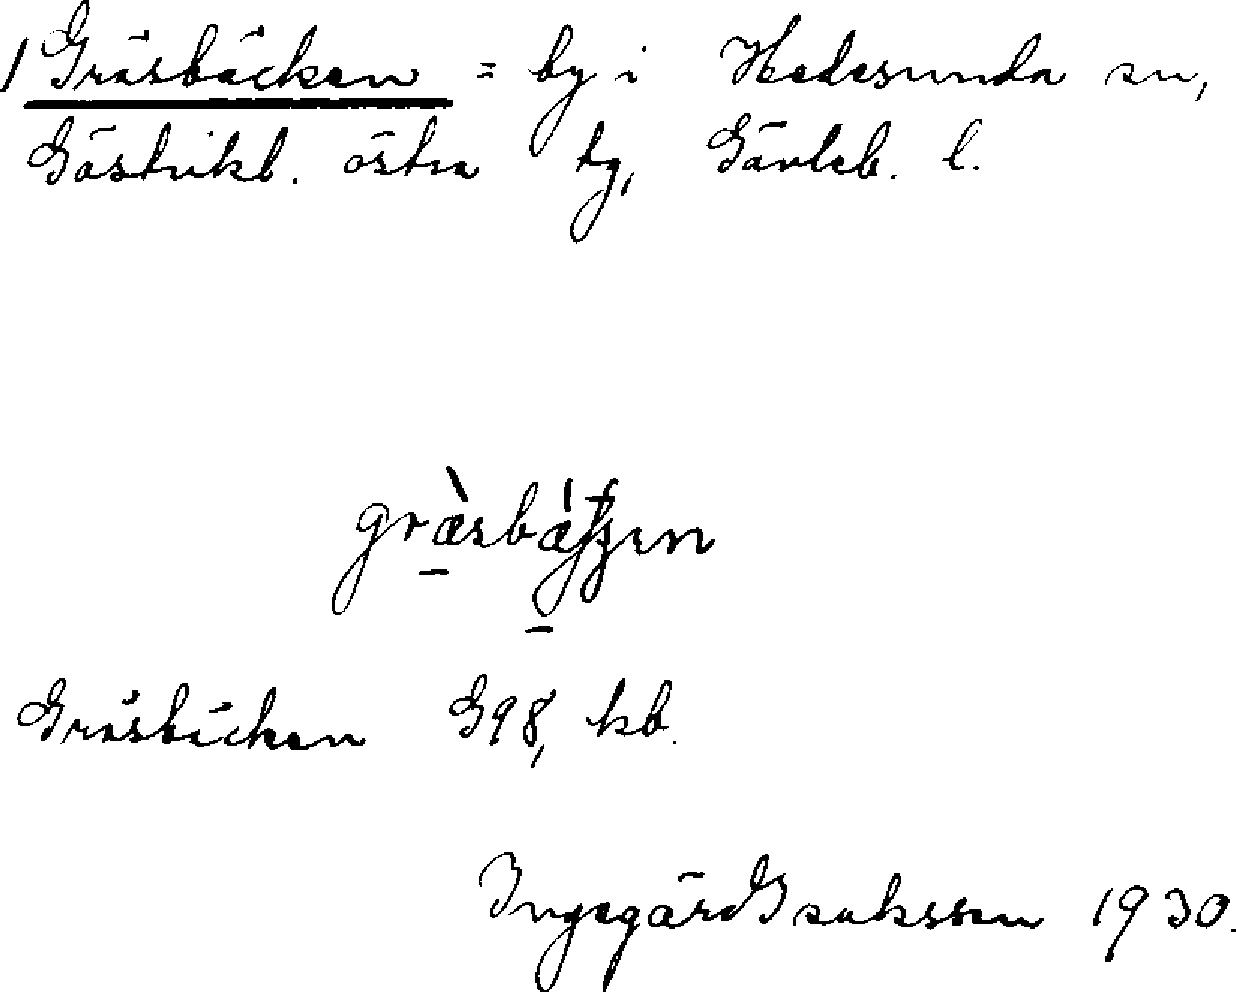 1 Gräsbäcken = by i Hedesunda sn,
Gästrikl. östra tg, Gävleb. l.
Gräsbäcken G98, kb.
Ingegärd Isaksson 1930.